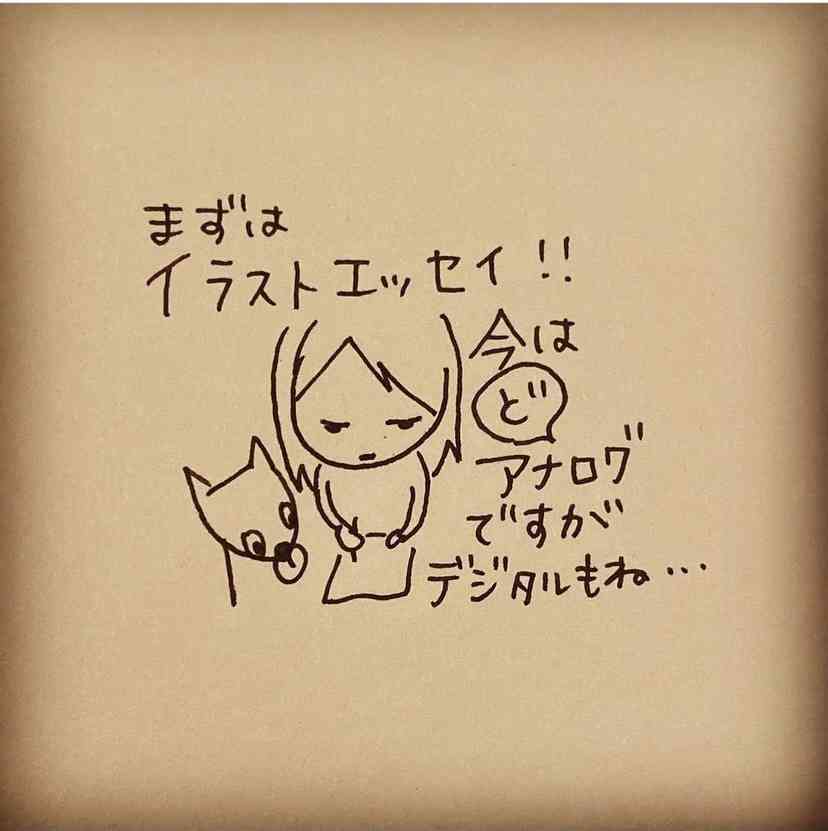 まずは
イラストエッセイ!!
今は
ど
アナログ
ですが
デジタルもね…